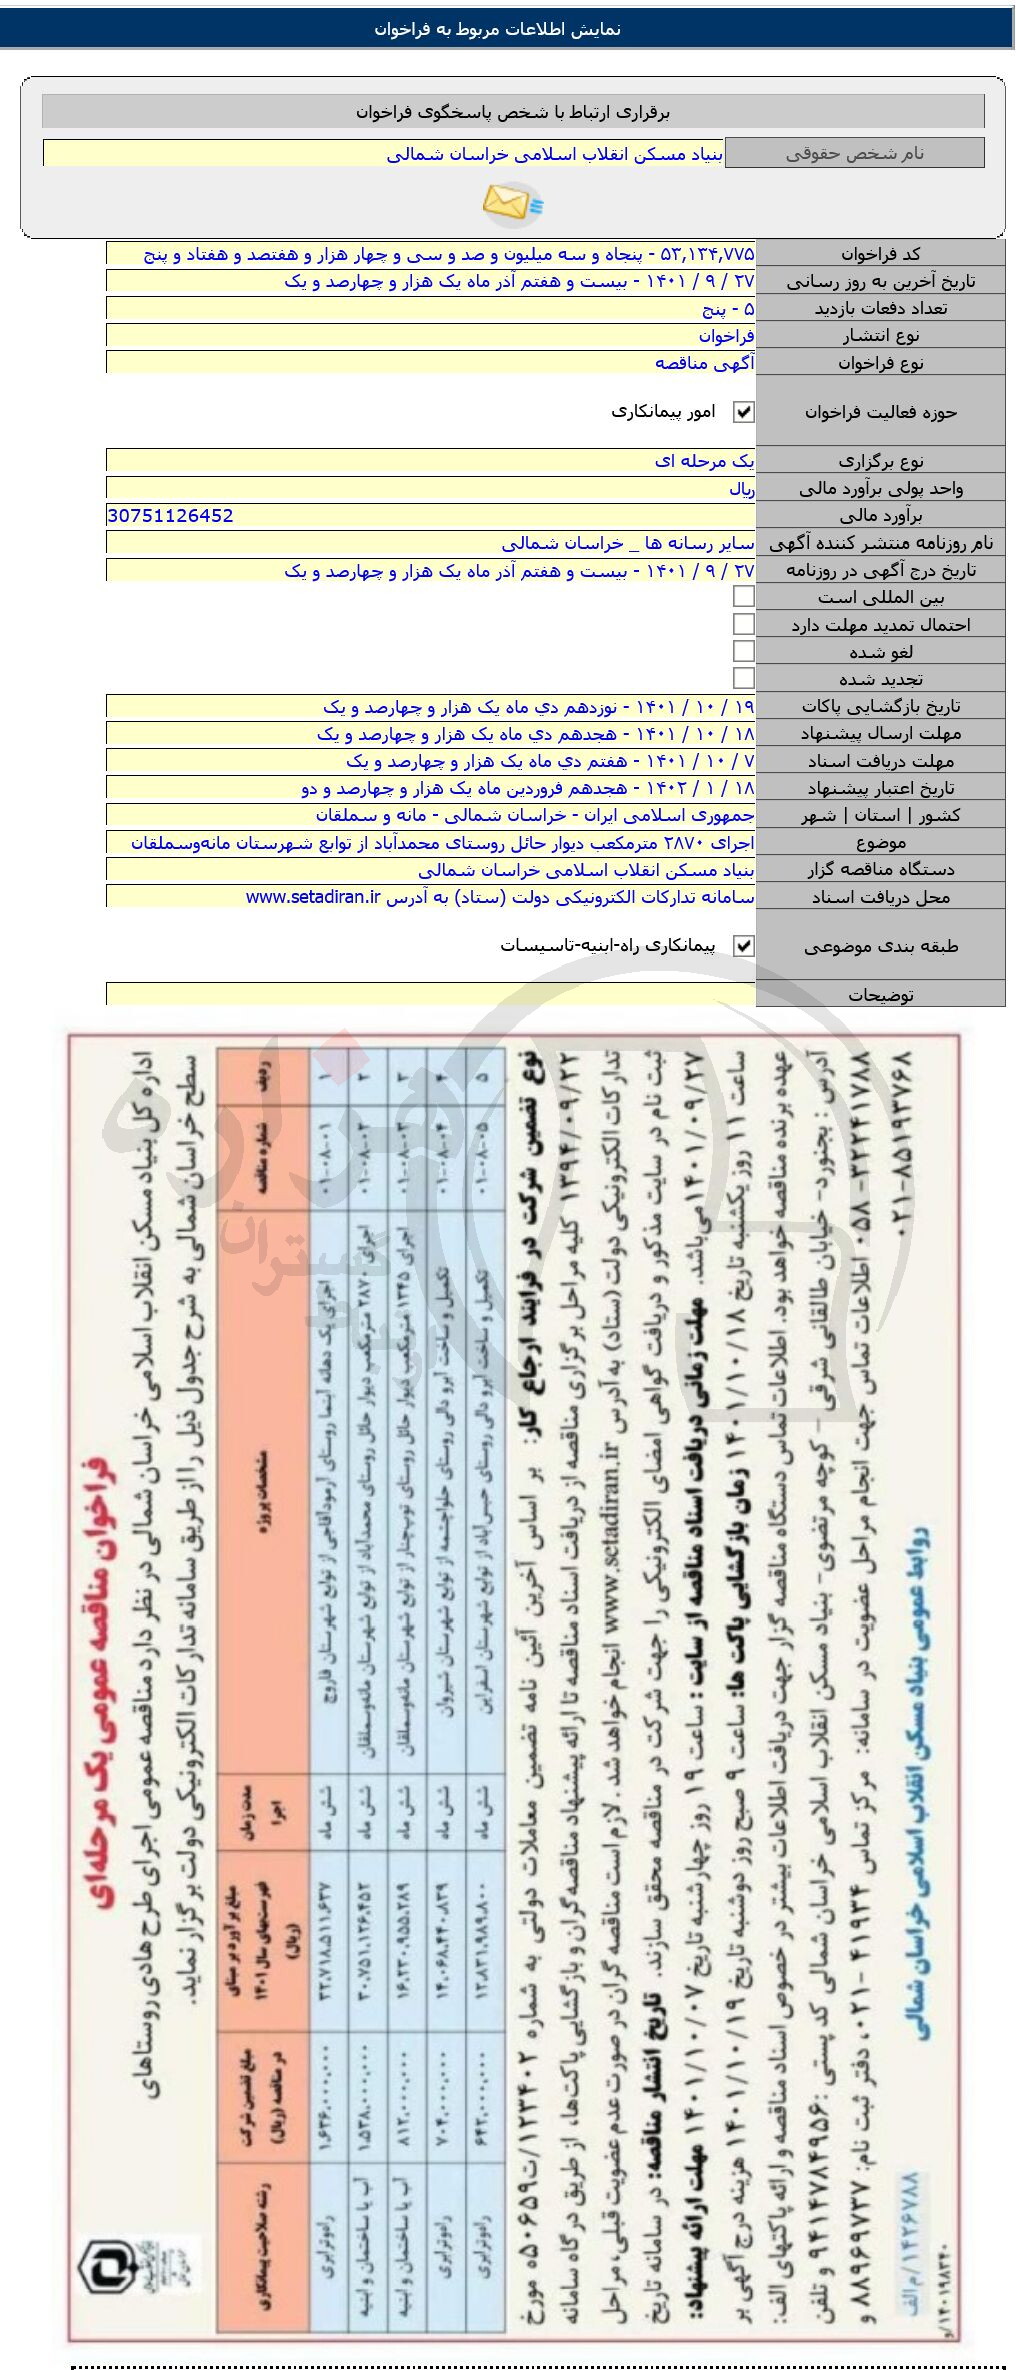 نمایش اطلاعات مربوط به فراخوان
برقراری ارتباط با شخص پاسخگوی فراخوان
نام شخص حقوقی بنیاد مسکن انقلاب اسلامی خراسان شمالی
کد فراخوان ۵۳,۱۳۴,۷۷۵ - پنجاه و سه میلیون و صد و سی و چهار هزار و هفتصد و هفتاد و پنج
تاریخ آخرین به روز رسانی ۲۷ / ۹ / ۱۴۰۱ - بیست و هفتم آذر ماه یک هزار و چهارصد و یک
تعداد دفعات بازدید ۵ - پنج
نوع انتشار فراخوان
نوع فراخوان آگهی مناقصه
حوزه فعالیت فراخوان امور پیمانکاری
نوع برگزاری یک مرحله ای
واحد پولی برآورد مالی ریال
برآورد مالی 30751126452
نام روزنامه منتشر کننده آگهی سایر رسانه ها _ خراسان شمالی
تاریخ درج آگهی در روزنامه ۲۷ / ۹ / ۱۴۰۱ - بیست و هفتم آذر ماه یک هزار و چهارصد و یک
بین المللی است
احتمال تمدید مهلت دارد
لغو شده
تجدید شده
تاریخ بازگشایی پاکات ۱۹ / ۱۰ / ۱۴۰۱ - نوزدهم دي ماه یک هزار و چهارصد و یک
مهلت ارسال پیشنهاد ۱۸ / ۱۰ / ۱۴۰۱ - هجدهم دي ماه یک هزار و چهارصد و یک
مهلت دریافت اسناد ۷ / ۱۰ / ۱۴۰۱ - هفتم دي ماه یک هزار و چهارصد و یک
تاریخ اعتبار پیشنهاد ۱۸ / ۱ / ۱۴۰۲ - هجدهم فروردین ماه یک هزار و چهارصد و دو
کشور | استان | شهر جمهوری اسلامی ایران - خراسان شمالی - مانه و سملقان
موضوع اجرای ۲۸۷۰ مترمکعب دیوار حائل روستای محمدآباد از توابع شهرستان مانه‌وسملقان
دستگاه مناقصه گزار بنیاد مسکن انقلاب اسلامی خراسان شمالی
محل دریافت اسناد سامانه تدارکات الکترونیکی دولت (ستاد) به آدرس www.setadiran.ir
طبقه بندی موضوعی پیمانکاری راه-ابنیه-تاسیسات
توضیحات
فراخوان مناقصه عمومی یک مرحله‌ای
اداره کل بنیاد مسکن انقلاب اسلامی خراسان شمالی در نظر دارد مناقصه عمومی اجرای طرح هادی روستاهای
سطح خراسان شمالی به شرح جدول ذیل را از طریق سامانه تدارکات الکترونیکی دولت برگزار نماید.
ردیف شماره مناقصه مشخصات پروژه مدت زمان اجرا مبلغ برآورد بر مبنای فهرست‌بهای سال ۱۴۰۱ (ریال) مبلغ تضمین شرکت در مناقصه (ریال) رشته صلاحیت پیمانکاری
۱ ۰۱-۰۸-۰۱ اجرای یک دهانه آبنما روستای آرمودآقاجی از توابع شهرستان فاروج شش ماه ۳۲.۷۱۸.۵۱۱.۶۳۷ ۱.۶۳۶.۰۰۰.۰۰۰ راه‌وترابری
۲ ۰۱-۰۸-۰۲ اجرای ۲۸۷۰ مترمکعب دیوار حائل روستای محمدآباد از توابع شهرستان مانه‌وسملقان شش ماه ۳۰.۷۵۱.۱۲۶.۴۵۲ ۱.۵۳۸.۰۰۰.۰۰۰ آب یا ساختمان و ابنیه
۳ ۰۱-۰۸-۰۳ اجرای ۱۳۴۵ مترمکعب دیوار حائل روستای توپ‌چنار از توابع شهرستان مانه‌وسملقان شش ماه ۱۶.۲۳۰.۹۵۵.۲۸۹ ۸۱۲.۰۰۰.۰۰۰ آب یا ساختمان و ابنیه
۴ ۰۱-۰۸-۰۴ تکمیل و ساخت آبرو دالی روستای حلواچشمه از توابع شهرستان شیروان شش ماه ۱۴.۰۶۸.۴۴۰.۸۳۹ ۷۰۴.۰۰۰.۰۰۰ راه‌وترابری
۵ ۰۱-۰۸-۰۵ تکمیل و ساخت آبرو دالی روستای حبس‌آباد از توابع شهرستان اسفراین شش ماه ۱۲.۸۳۱.۹۸۹.۸۰۰ ۶۴۲.۰۰۰.۰۰۰ راه‌وترابری
نوع تضمین شرکت در فرایند ارجاع کار: بر اساس آخرین آئین نامه تضمین معاملات دولتی به شماره ۱۲۳۴۰۲/ت۵۰۶۵۹ه مورخ
۱۳۹۴/۰۹/۲۲ کلیه مراحل برگزاری مناقصه از دریافت اسناد مناقصه تا ارائه پیشنهاد مناقصه‌گران و بازگشایی پاکت‌ها، از طریق درگاه سامانه
تدارکات الکترونیکی دولت (ستاد) به آدرس www.setadiran.ir انجام خواهد شد. لازم است مناقصه گران در صورت عدم عضویت قبلی، مراحل
ثبت نام در سایت مذکور و دریافت گواهی امضای الکترونیکی را جهت شرکت در مناقصه محقق سازند. تاریخ انتشار مناقصه: در سامانه تاریخ
۱۴۰۱/۰۹/۲۷ می‌باشد. مهلت زمانی دریافت اسناد مناقصه از سایت: ساعت ۱۹ روز چهارشنبه تاریخ ۱۴۰۱/۱۰/۰۷ مهلت ارائه پیشنهاد:
ساعت ۱۱ روز یکشنبه تاریخ ۱۴۰۱/۱۰/۱۸ زمان بازگشایی پاکت ها: ساعت ۹ صبح روز دوشنبه تاریخ ۱۴۰۱/۱۰/۱۹ هزینه درج آگهی بر
عهده برنده مناقصه خواهد بود. اطلاعات تماس دستگاه مناقصه گزار جهت دریافت اطلاعات بیشتر در خصوص اسناد مناقصه و ارائه پاکتهای الف:
آدرس: بجنورد- خیابان طالقانی شرقی - کوچه مرتضوی- بنیاد مسکن انقلاب اسلامی خراسان شمالی کد پستی: ۹۴۱۴۷۸۴۹۵۶ و تلفن
۰۵۸-۳۲۲۴۱۷۸۸ اطلاعات تماس جهت انجام مراحل عضویت در سامانه: مرکز تماس ۴۱۹۳۴-۰۲۱، دفتر ثبت نام: ۸۸۹۶۹۷۳۷ و
۰۲۱-۸۵۱۹۳۷۶۸
روابط عمومی بنیاد مسکن انقلاب اسلامی خراسان شمالی
۱۴۲۶۷۸۸/م الف
۱۴۰۱۹۸۳۴۰/و
هزاره